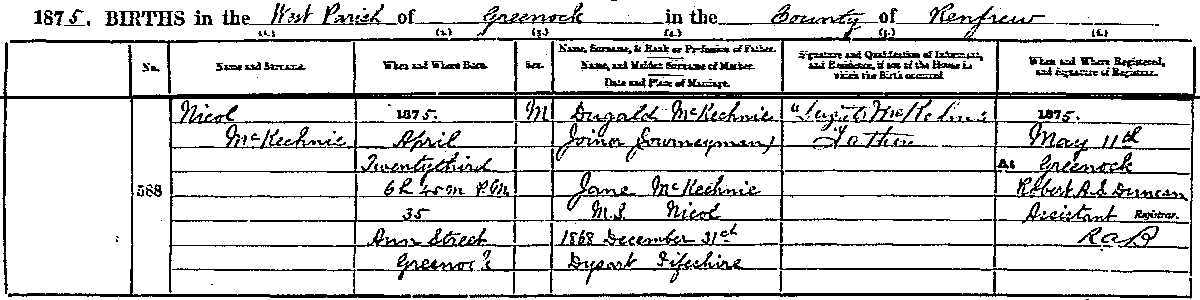 1875. BIRTHS in the West Parish of Greenock in the County of Renfrew
(1.) (2.) (3.) (4.) (5.) (6.)
No.
Name and Surname.
When and Where Born.
Sex.
Name, Surname, & Rank or Profession of Father.
Name, and Maiden Surname of Mother.
Date and Place of Marriage.
Signature and Qualification of Informant,
and Residence, if out of the House in
which the Birth occurred.
When and Where Registered,
and Signature of Registrar.
588
Nicol
McKechnie
1875.
April
Twentythird
6h m P.M.
35
Ann Street
Greenock
M
Dugald McKechnie
Joiner (Journeyman)
Jane McKechnie
M.S. Nicol
1868 December 31st
Dysart Fifeshire
Father
1875.
May 11th
At Greenock
Robert A.S. Duncan
Assistant Registrar.